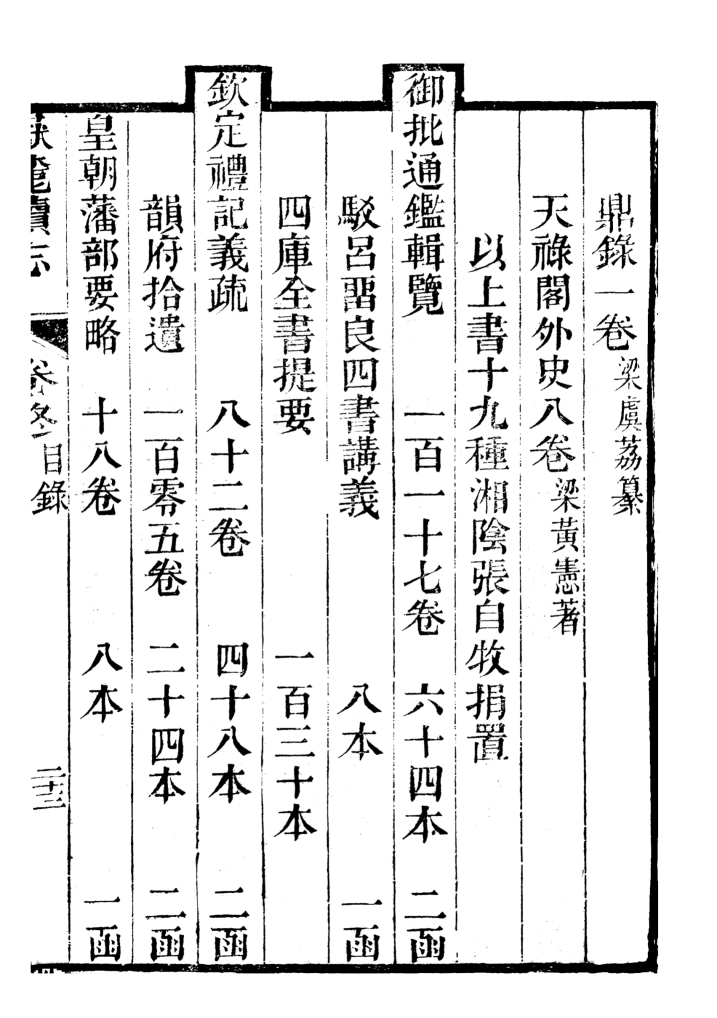 鼎錄一卷梁虞荔纂
天祿閣外史八卷梁黃憲著
以上書十九種湘陰張自牧捐置
御批通鑑輯覽 一百一十七卷 六十四本 二函
駁呂留良四書講義 八本 一函
四庫全書提要 一百三十本
欽定禮記義疏 八十二卷 四十八本 二函
韻府拾遺 一百零五卷 二十四本 二函
皇朝藩部要略 十八卷 八本 一函
續志 卷冬目錄 二十三